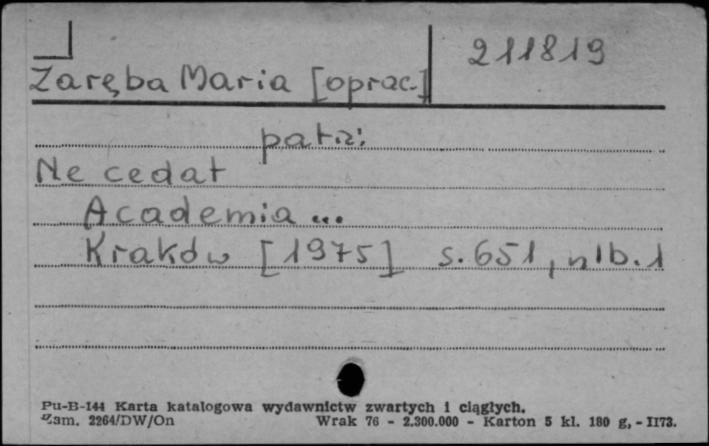 211819
Zaręba Maria [oprac.]
patrz:
Ne cedat
Academia...
Kraków [1975] s. 651, nlb. 1
Pu-B-144 Karta katalogowa wydawnictw zwartych i ciągłych.
Zam. 2264/DW/On Wrak 76 - 2.300.000 - Karton 5 kl. 180 g, - II73.